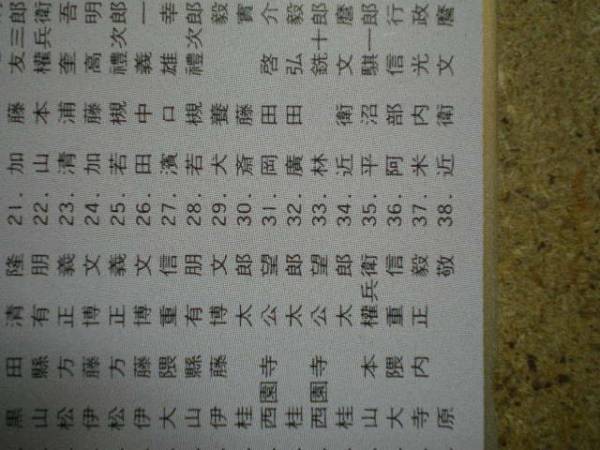 黒田清隆 21. 加藤友三郎
山縣有朋 22. 山本權兵衛
松方正義 23. 清浦奎吾
伊藤博文 24. 加藤高明
松方正義 25. 若槻禮次郎
伊藤博文 26. 田中義一
大隈重信 27. 濱口雄幸
山縣有朋 28. 若槻禮次郎
伊藤博文 29. 犬養毅
桂太郎 30. 斎藤實
西園寺公望 31. 岡田啓介
桂太郎 32. 廣田弘毅
西園寺公望 33. 林銑十郎
桂太郎 34. 近衛文麿
山本權兵衛 35. 平沼騏一郎
大隈重信 36. 阿部信行
寺内正毅 37. 米内光政
原敬 38. 近衛文麿